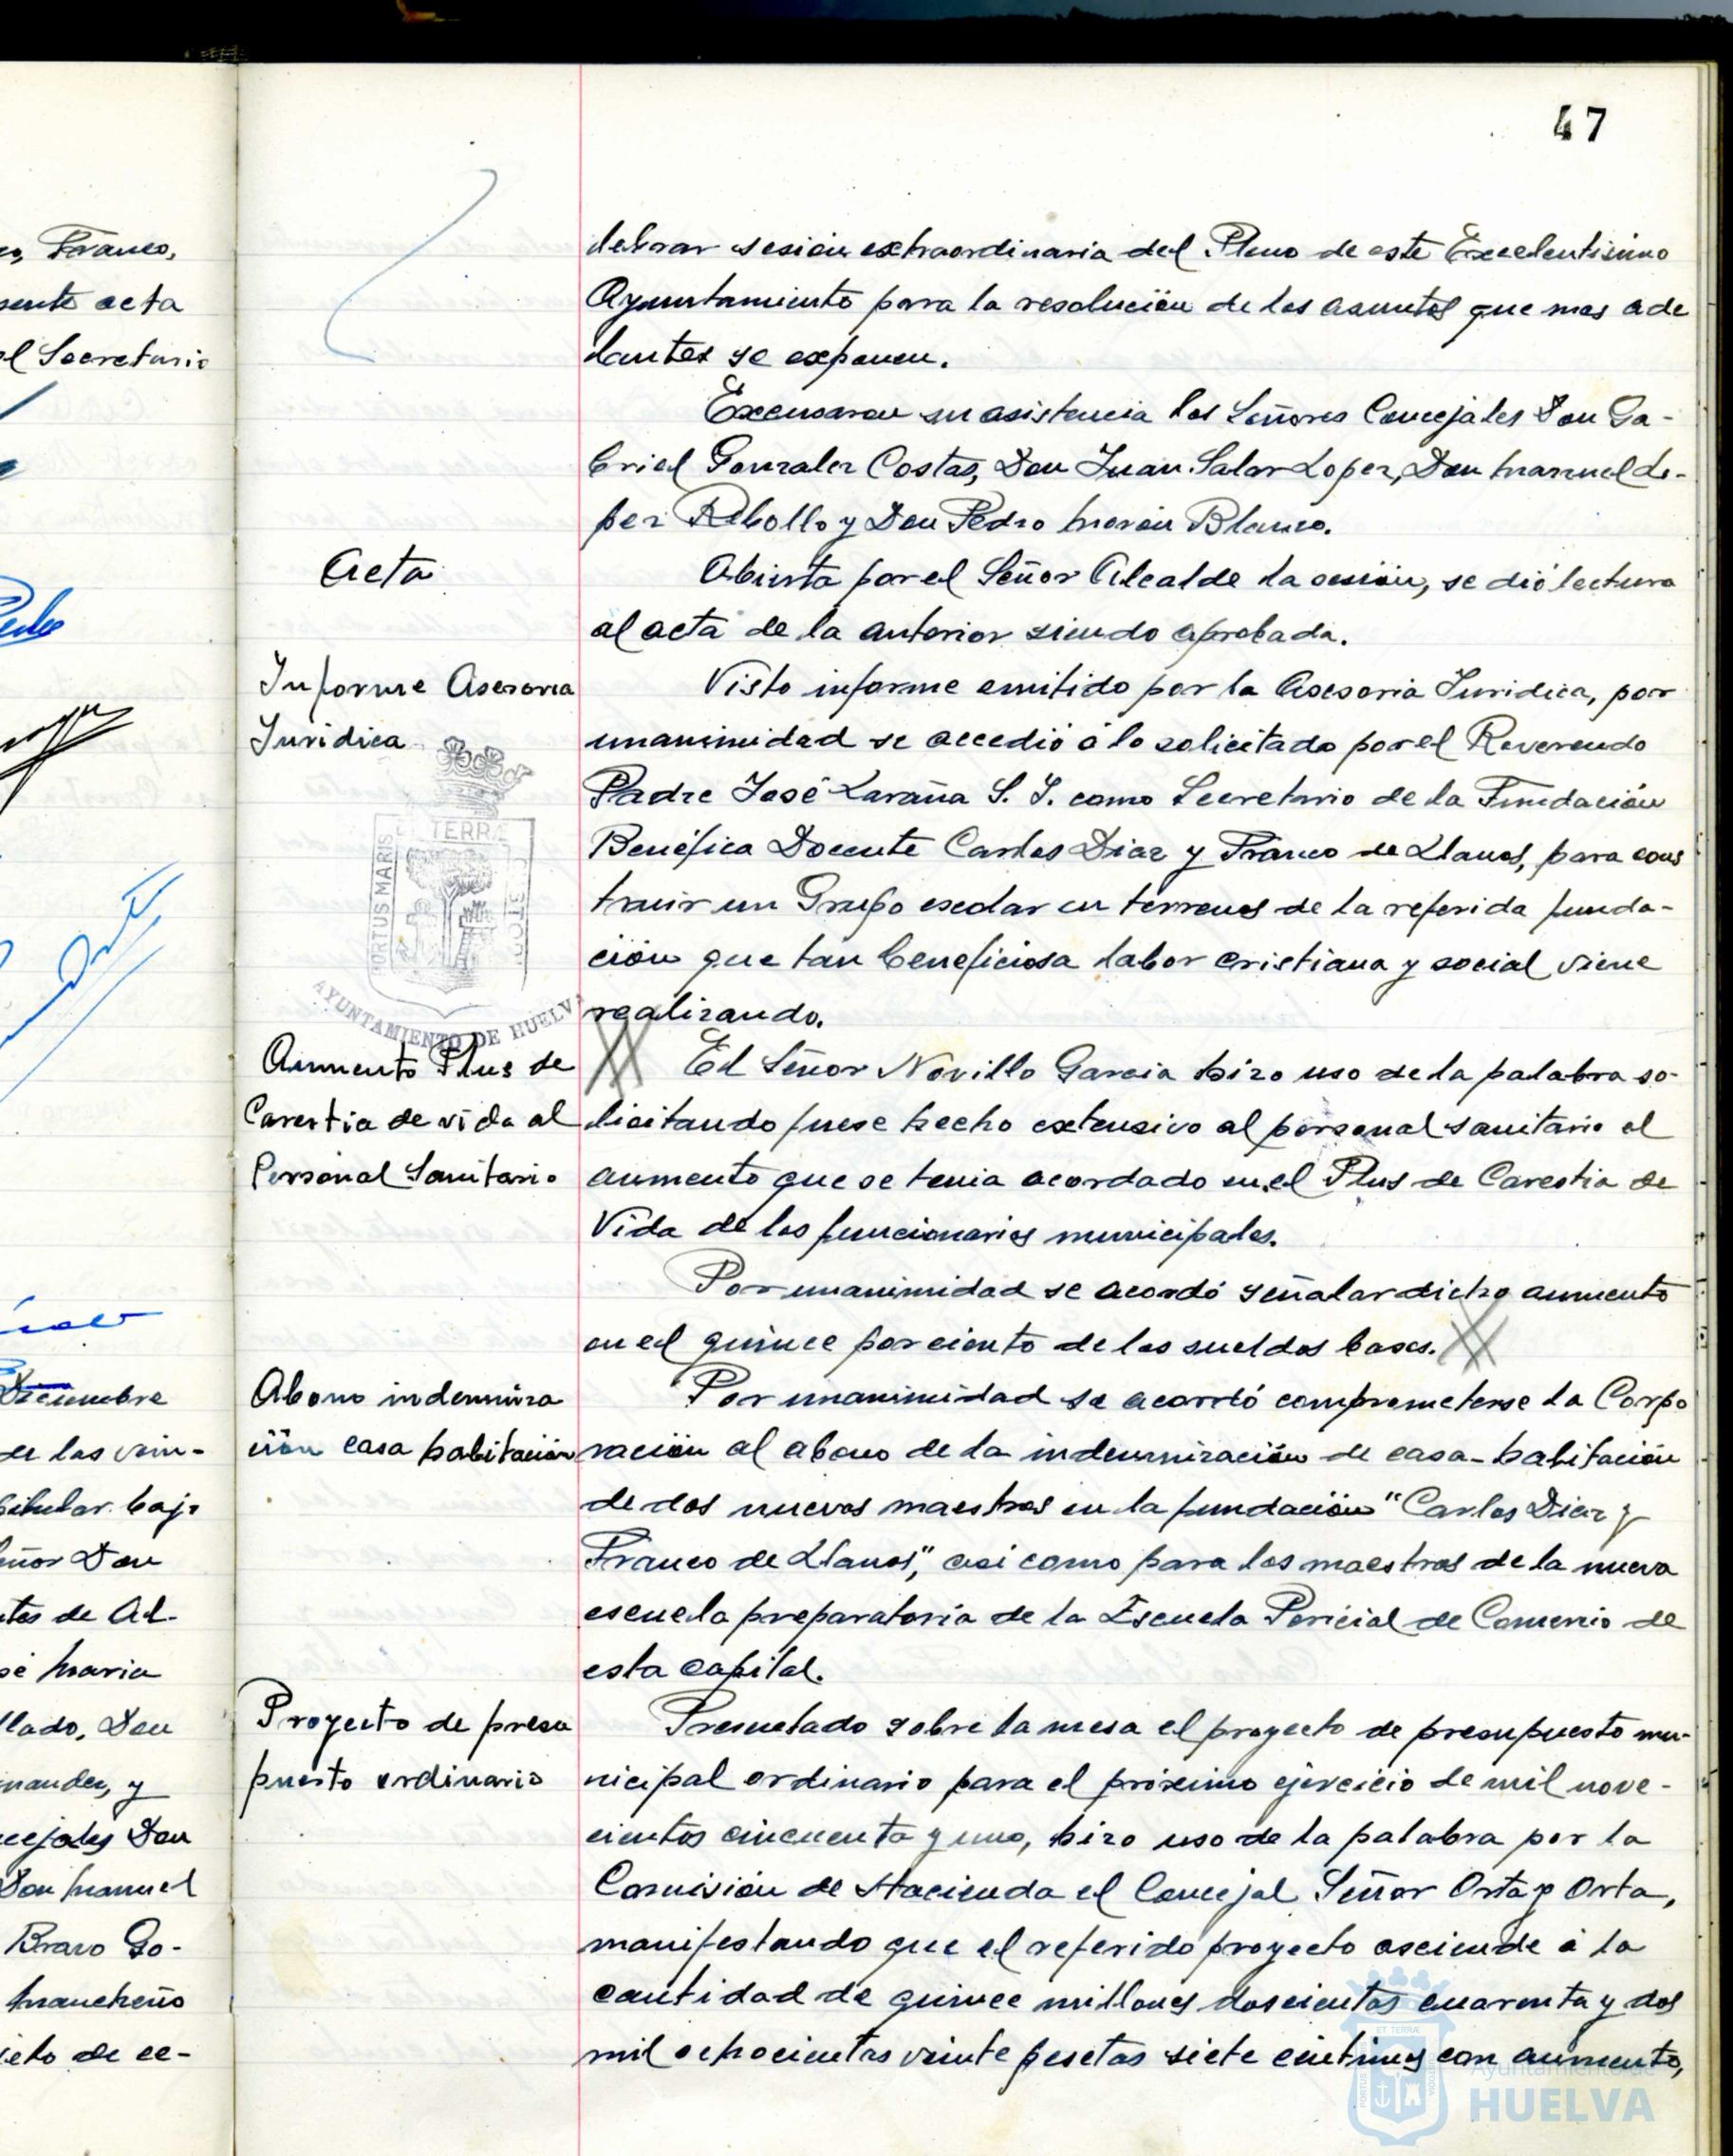 47
Franco,
sente acta
el Secretario
Diciembre
de las vein-
pitular bajo
eñor Don
ntes de Al-
sé Maria
llado, Don
nandez, y
cejales Don
Don Manuel
Bravo Go-
Mancheño
jeto de ce-
lebrar sesión extraordinaria del Pleno de este Excelentisimo
Ayuntamiento para la resolución de los asuntos que mas ade
lantes se exponen.
Excusaron su asistencia los Señores Concejales Don Ga-
briel Gonzalez Costas, Don Juan Salas Lopez, Don Manuel Lo-
pez Rebollo y Don Pedro Morón Blanco.
Acta
Abierta por el Señor Alcalde la sesión, se dió lectura
al acta de la anterior siendo aprobada.
Informe Asesoria
Juridica
Visto informe emitido por la Asesoria Juridica, por
unanimidad se accedió a lo solicitado por el Reverendo
Padre José Laraña S. J. como Secretario de la Fundación
Benéfica Docente Carlos Diaz y Franco de Llanos, para cons
truir un Grupo escolar en terrenos de la referida funda-
ción que tan beneficiosa labor cristiana y social viene
realizando.
ET TERRÆ
PORTUS MARIS
CUSTODIA
AYUNTAMIENTO DE HUELVA
Aumento Plus de
Carestia de vida al
Personal Sanitario
El Señor Novillo Garcia hizo uso de la palabra so-
licitando fuese hecho extensivo al personal sanitario el
aumento que se tenia acordado en el Plus de Carestia de
Vida de los funcionarios municipales.
Por unanimidad se acordó señalar dicho aumento
en el quince por ciento de los sueldos bases.
Abono indemniza
ción casa habitación
Por unanimidad se acordó comprometerse la Corpo
ración al abono de la indemnización de casa-habitación
de dos nuevos maestros en la fundación "Carlos Diaz y
Franco de Llanos", asi como para los maestros de la nueva
escuela preparatoria de la Escuela Pericial de Comercio de
esta capital.
Proyecto de presu
puesto ordinario
Presentado sobre la mesa el proyecto de presupuesto mu-
nicipal ordinario para el próximo ejercicio de mil nove-
cientos cincuenta y uno, hizo uso de la palabra por la
Comisión de Hacienda el Concejal Señor Orta y Orta,
manifestando que el referido proyecto asciende á la
cantidad de quince millones doscientas cuarenta y dos
mil ochocientas veinte pesetas siete centimos con aumento,
Ayuntamiento de
HUELVA